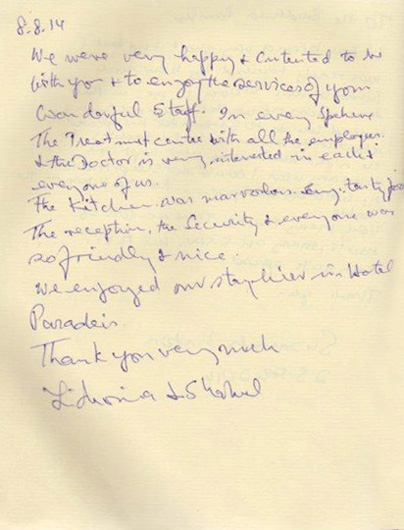 8.8.14
We were very happy & contented to be
with you & to enjoy the services of your
wonderful Staff. In every Sphere
The Treatment centre with all the employees
& the Doctor is very interested in
everyone of us.
The Kitchen was marvodous. tasty
The reception, the Security & everyone was
so friendly & nice.
We enjoyed our stay hier in Hotel
Paradeis.
Thank you very much